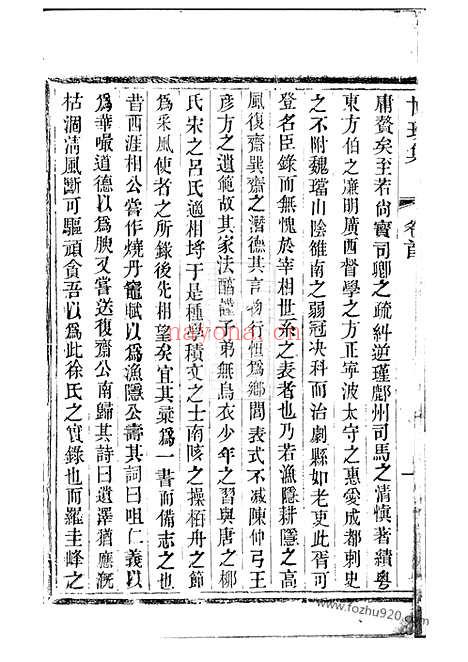 庸贅矣至若尚寶司卿之疏糾逆瑾鄜州司馬之清愼著績粤
東方伯之廉明廣西督學之方正寧波太守之惠愛成都刺史
之不附魏璫山陰雒南之弱冠决科而治劇縣如老吏此胥可
登名臣錄而無愧於宰相世系之表者也乃若漁隱耕隱之高
風復齋巽齋之潛德其言物行恒爲鄉閭表式不减陳仲弓王
彥方之遺範故其家法醕謹子弟無烏衣少年之習與唐之柳
氏宋之呂氏適相埒于是種學積文之士南陔之操栢舟之節
爲采風使者之所錄後先相望矣宜其彙爲一書而備志之也
昔西涯相公嘗作燒丹竈賦以爲漁隱公壽其詞曰咀仁義以
爲華噉道德以爲腴又嘗送復齋公南歸其詩曰遺澤猶應溉
枯涸清風斷可驅頑貪吾以爲此徐氏之實錄也而羅圭峰之
卷首
一
nayona.cn
www.fozhu920.com